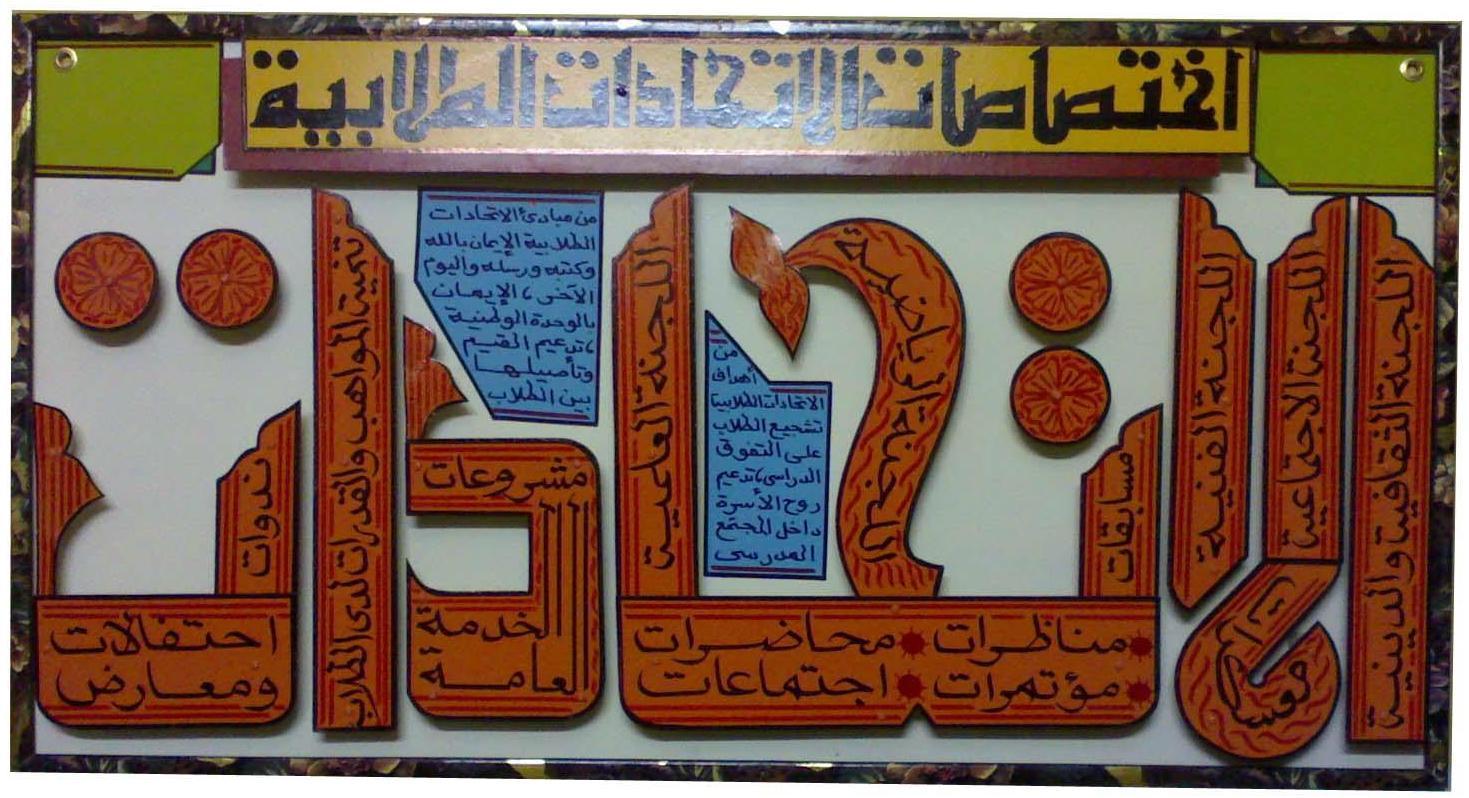 اختصاصات الاتحادات الطلابية
اللجنة الثقافية والدينية
اللجنة الاجتماعية
اللجنة الفنية
معسكرات
مسابقات
اللجنة الرياضية
مناظرات * محاضرات
مؤتمرات * اجتماعات
من
أهداف
الاتحادات الطلابية
تشجيع الطلاب
على التفوق
الدراسى، تدعيم
روح الأسرة
داخل المجتمع
المدرسى
اللجنة العلمية
من مبادئ الاتحادات
الطلابية الإيمان بالله
وكتبه ورسله واليوم
الآخر، الإيمان
بالوحدة الوطنية
، تدعيم القيم
وتأصيلها
بين الطلاب
مشروعات
الخدمة
العامة
تنمية المواهب والقدرات لدى الطلاب
ندوات
احتفالات
ومعارض